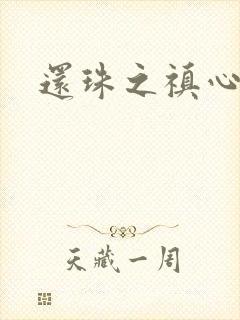 還珠之禛心
天藏一周